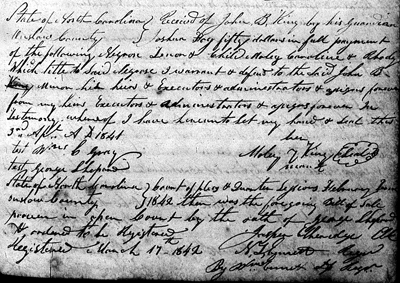 State of North Carolina } Received of John B. King by his Guardian
Onslow County } Joshua fifty dollars in full payment
of the following Negroes & Child Moley Caroline & Rhody
Which title to said Negroes I warrant & defend to the said John B
King Minor his heirs & Executors & administrators & assigns forever
from my heirs Executors & Administrators & assigns forever In
testimony whereof I have hereunto set my hand & seal this
3rd Apl A D 1841
her
test C Gray
Moley King
mark
test George Shepard
State of North Carolina } Court of pleas & Quarter Sessions February
Onslow County } 1842 then was the foregoing Bill of Sale
proven in open Court by the oath of George Shepard
& ordered to be Registered
Jasper Etheridge Clk
Registered March 17th 1842
By